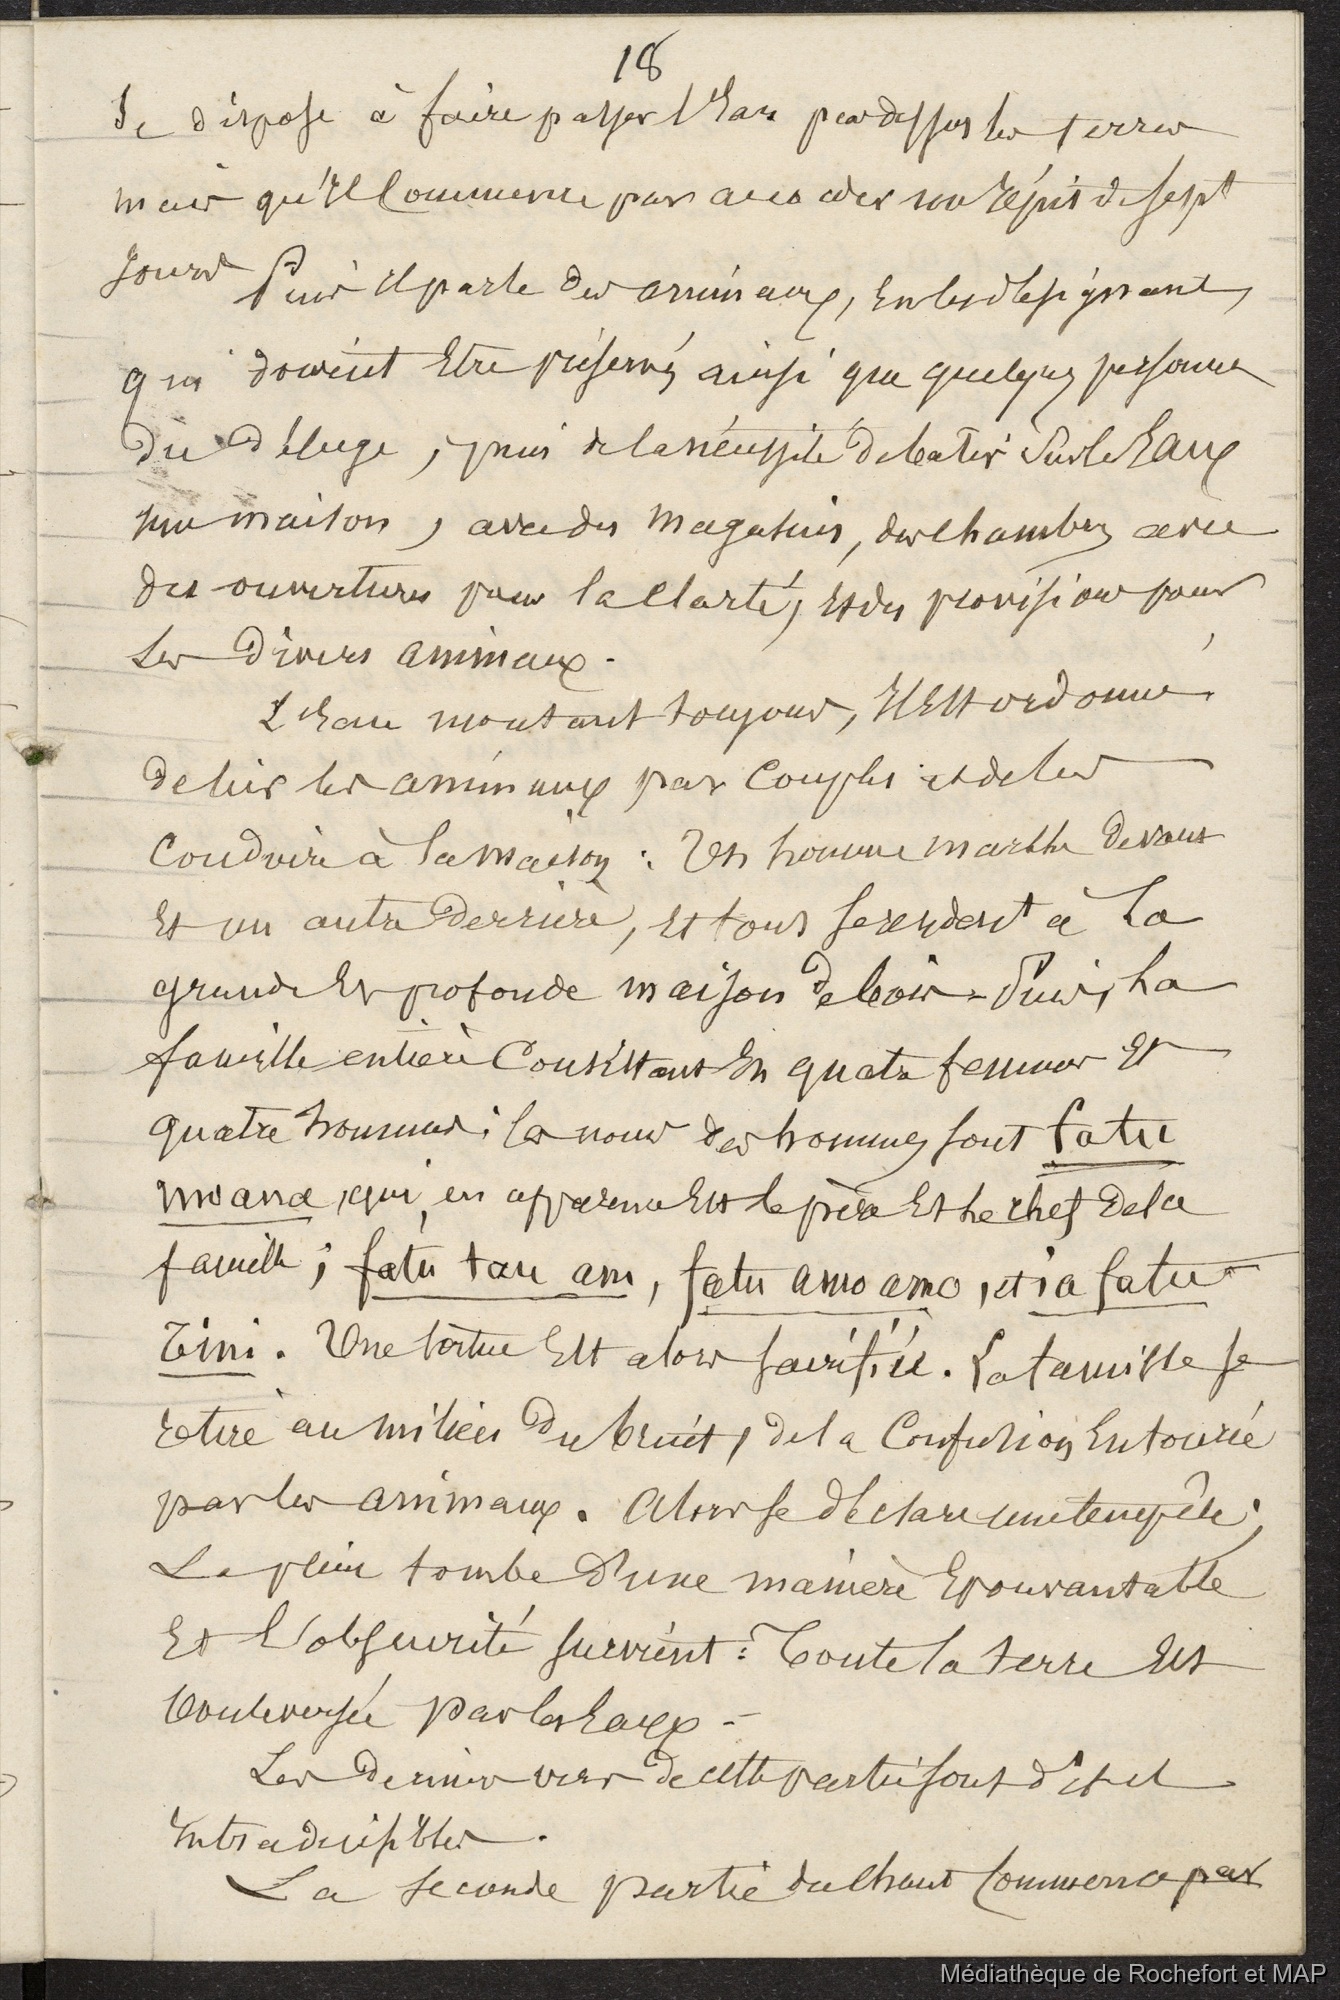 18
se dispose à faire passer l'Eau par dessus les terres
mais qu'il commence par accorder un répit de sept
jours Puis il parle des animaux, en les désignant,
qui doivent Etre préservés ainsi que quelques personnes
du déluge, puis de la nécessité de batir sur les Eaux
une maison, avec des magasins, des chambres avec
des ouvertures pour la clarté, et des provisions pour
les divers animaux.
L'Eau montant toujours, Il Est ordonné
de lier les animaux par couples et de les
conduire à la maison : Un homme marche devant
Et un autre derrière, et tous se rendent à la
grande Et profonde maison de bois - Puis, la
famille entière consistant En quatre femmes Et
quatre hommes ; les noms des hommes sont fatu
moana, qui, en apparence Est le père Et le chef de la
famille ; fatu tau ani, fatu amo amo, et ia fatu
tini. Une tortue Est alors sacrifiée. La famille se
retire au milieu du bruit, de la confusion Entourée
par les animaux. Alors se déclare une tempête ;
La pluie tombe d'une manière Epouvantable
Et l'obscurité survient : Toute la terre Est
bouleversée par les Eaux -
Les derniers vers de cette partie sont
intraduisibles.
La seconde partie du chant commence par
Médiathèque de Rochefort et MAP